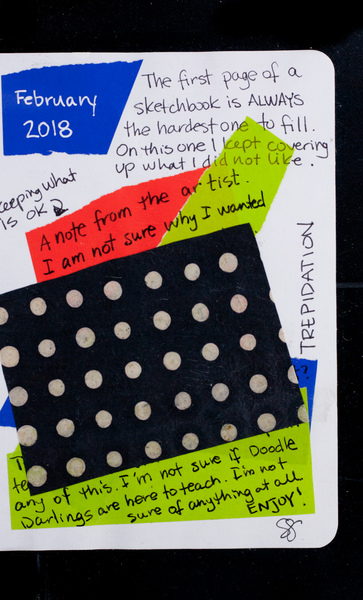 February
2018
The first page of a
sketchbook is ALWAYS
the hardest one to fill.
On this one I kept covering
up what I did not like.
keeping what
is ok
A note from the artist.
I am not sure why I wanted
TREPIDATION
?
any of this. I'm not sure if Doodle
Darlings are here to teach. I'm not
sure of anything at all.
ENJOY!